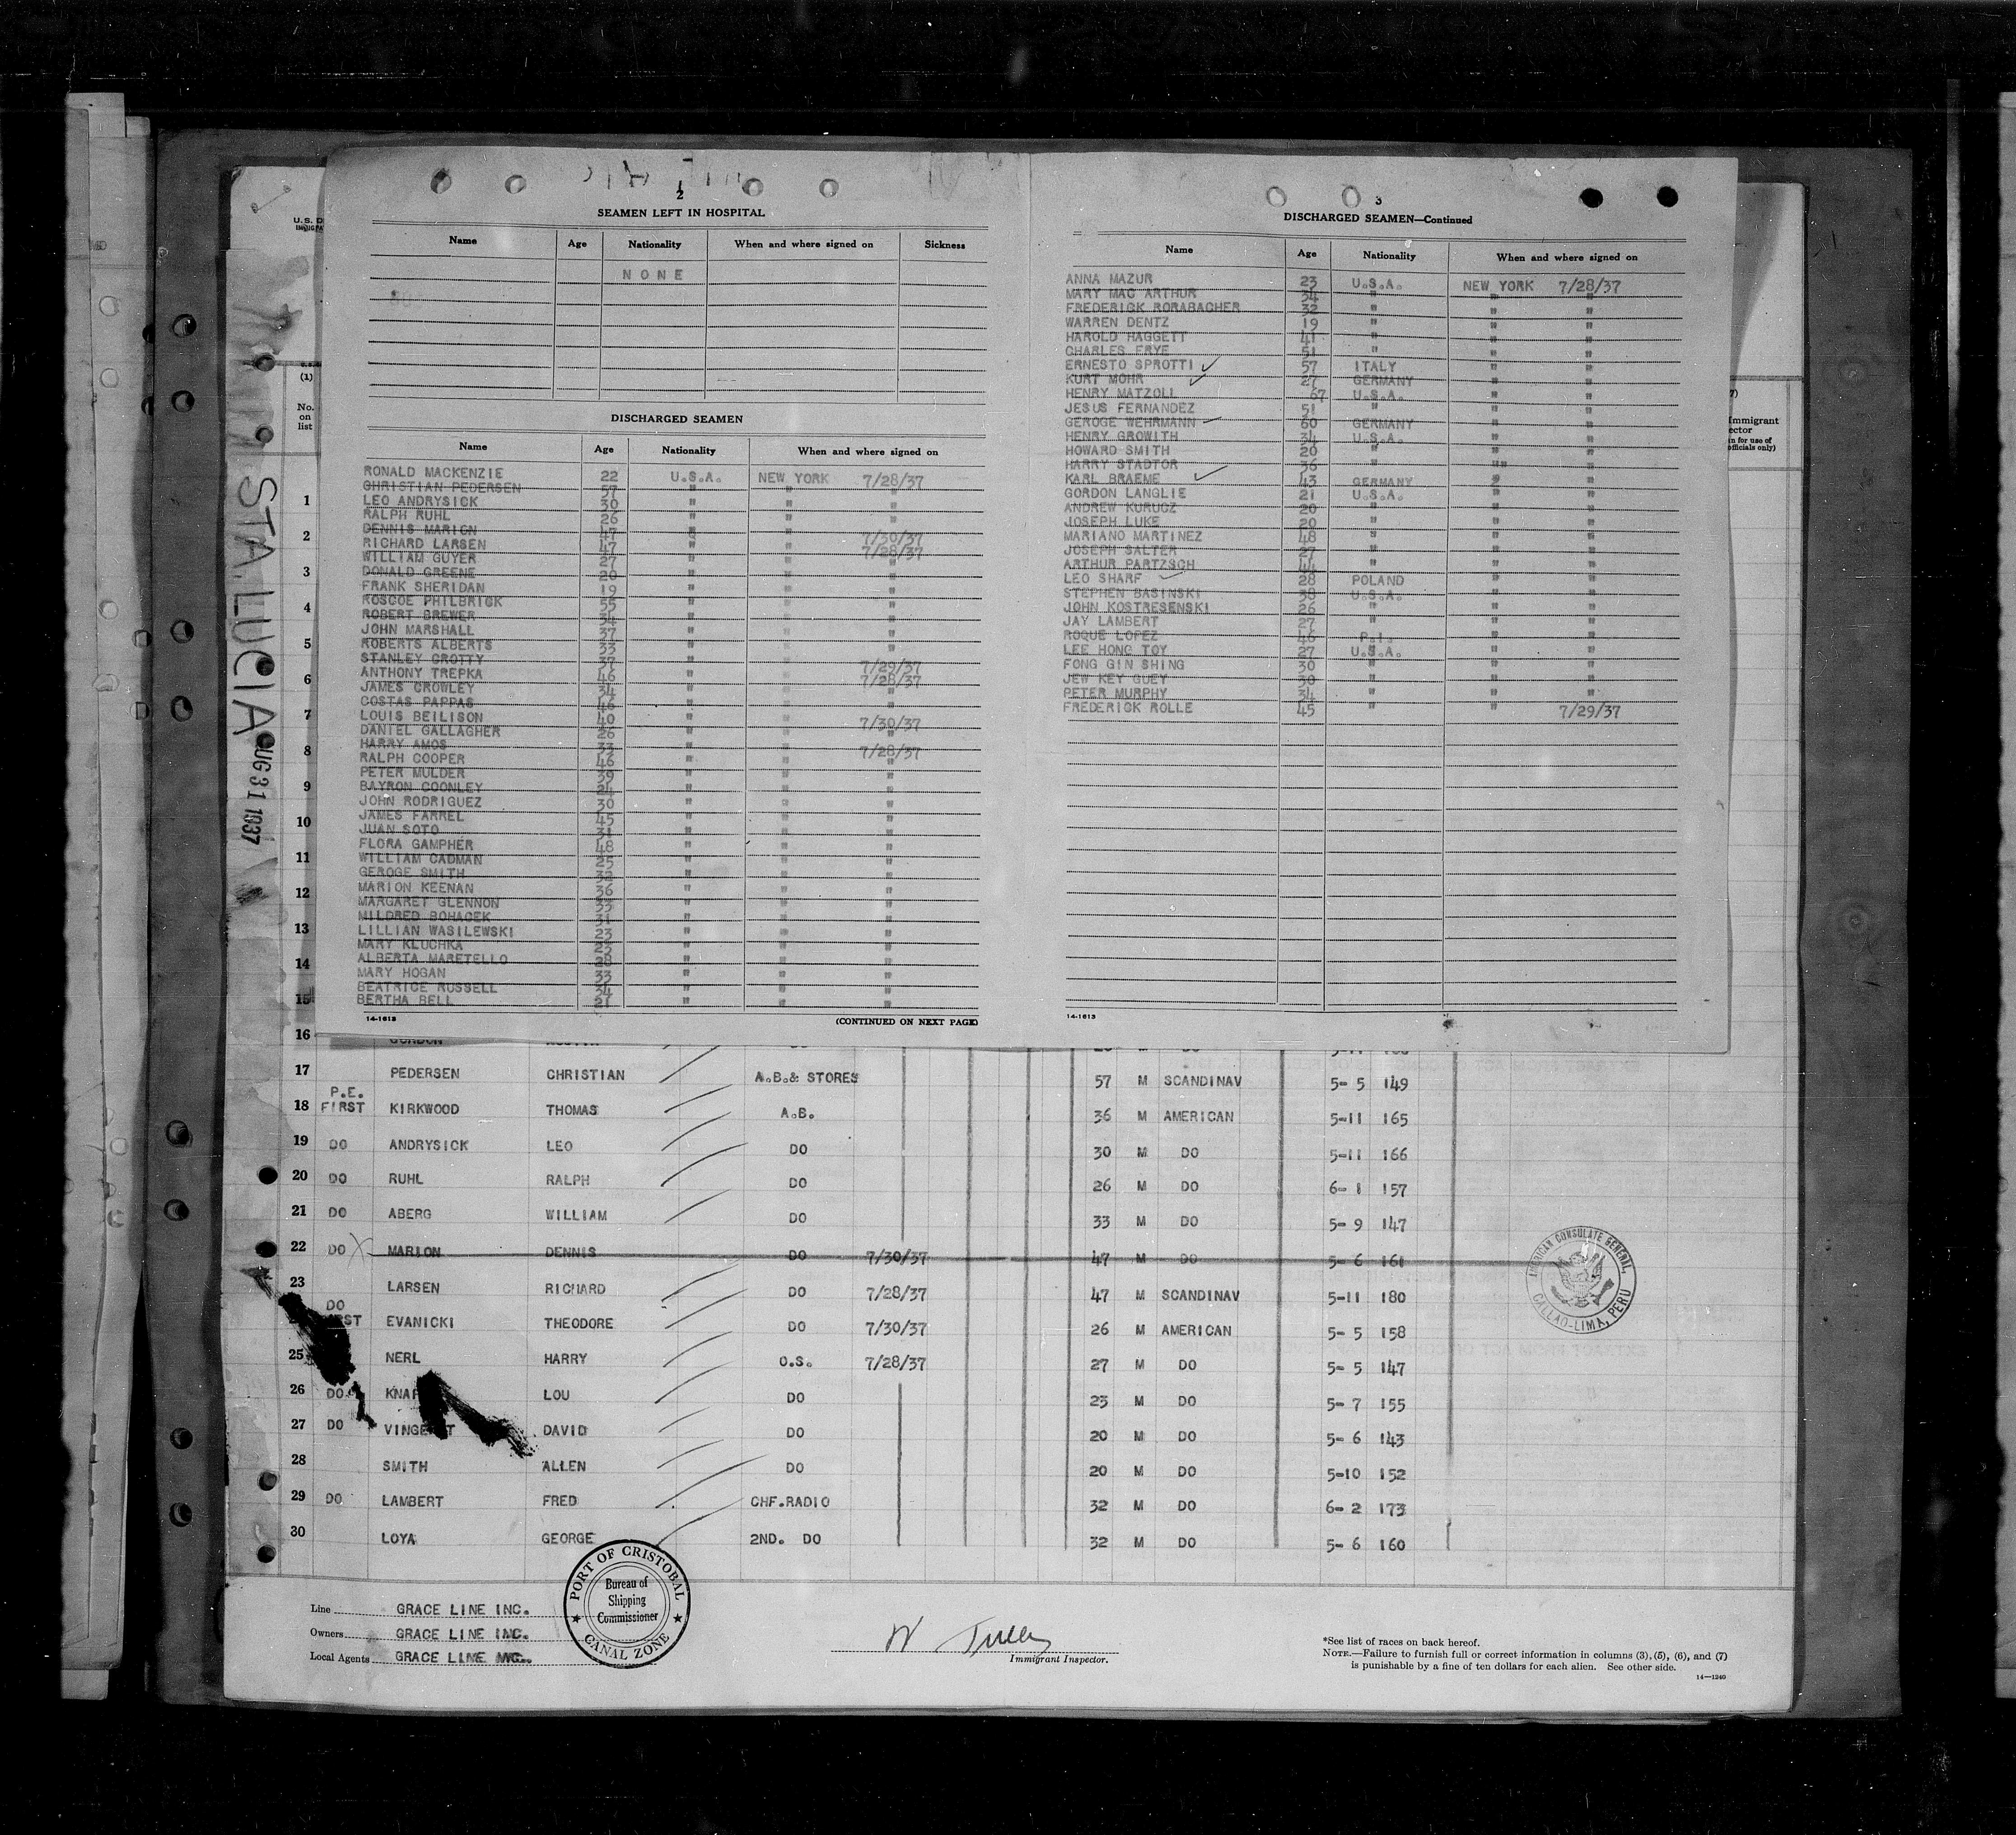 2
SEAMEN LEFT IN HOSPITAL
Name Age Nationality When and where signed on Sickness
NONE
DISCHARGED SEAMEN
Name Age Nationality When and where signed on
RONALD MACKENZIE 22 U.S.A. NEW YORK 7/28/37
CHRISTIAN PEDERSEN 57 " " "
LEO ANDRYSICK 30 " " "
RALPH RUHL 26 " " "
DENNIS MARION 47 " " 7/30/37
RICHARD LARSEN 47 " " 7/28/37
WILLIAM GUYER 27 " " "
DONALD GREENE 20 " " "
FRANK SHERIDAN 19 " " "
ROSCOE PHILBRICK 55 " " "
ROBERT BREWER 34 " " "
JOHN MARSHALL 37 " " "
ROBERTS ALBERTS 33 " " "
STANLEY CROTTY 37 " " 7/29/37
ANTHONY TREPKA 46 " " 7/28/37
JAMES CROWLEY 34 " " "
COSTAS PAPPAS 46 " " "
LOUIS BEILISON 40 " " 7/30/37
DANIEL GALLAGHER 26 " " "
HARRY AMOS 33 " " 7/28/37
RALPH COOPER 46 " " "
PETER MULDER 39 " " "
BAYRON COONLEY 24 " " "
JOHN RODRIGUEZ 30 " " "
JAMES FARREL 45 " " "
JUAN SOTO 31 " " "
FLORA GAMPHER 48 " " "
WILLIAM CADMAN 25 " " "
GEROGE SMITH 32 " " "
MARION KEENAN 36 " " "
MARGARET GLENNON 33 " " "
MILDRED BOHACEK 31 " " "
LILLIAN WASILEWSKI 23 " " "
MARY KLUCHKA 23 " " "
ALBERTA MARETELLO 28 " " "
MARY HOGAN 33 " " "
BEATRICE RUSSELL 34 " " "
BERTHA BELL 21 " " "
14-1613 (CONTINUED ON NEXT PAGE)
3
DISCHARGED SEAMEN—Continued
Name Age Nationality When and where signed on
ANNA MAZUR 23 U.S.A. NEW YORK 7/28/37
MARY MAC ARTHUR 34 " " "
FREDERICK RORABACHER 32 " " "
WARREN DENTZ 19 " " "
HAROLD HAGGETT 41 " " "
CHARLES FRYE 51 " " "
ERNESTO SPROTTI ✓ 57 ITALY " "
KURT MOHR ✓ 27 GERMANY " "
HENRY MATZOLL 67 U.S.A. " "
JESUS FERNANDEZ 51 " " "
GEROGE WEHRMANN ✓ 60 GERMANY " "
HENRY GROWITH 34 U.S.A. " "
HOWARD SMITH 20 " " "
HARRY STADTOR 36 " " "
KARL BRAEME ✓ 43 GERMANY " "
GORDON LANGLIE 21 U.S.A. " "
ANDREW KURUCZ 20 " " "
JOSEPH LUKE 20 " " "
MARIANO MARTINEZ 48 " " "
JOSEPH SALTER 27 " " "
ARTHUR PARTZSCH 44 " " "
LEO SHARF ✓ 28 POLAND " "
STEPHEN BASINSKI 38 U.S.A. " "
JOHN KOSTRESENSKI 26 " " "
JAY LAMBERT 27 " " "
ROQUE LOPEZ 46 P.I. " "
LEE HONG TOY 27 U.S.A. " "
FONG GIN SHING 30 " " "
JEW KEY GUEY 30 " " "
PETER MURPHY 34 " " "
FREDERICK ROLLE 45 " " 7/29/37
14-1613
U.S. D
(1)
No.
on
list
7)
Immigrant
ector
n for use of
officials only)
STA. LUCIA
AUG 31 1937
1
2
3
4
5
6
7
8
9
10
11
12
13
14
15
16 GORDON
17 PEDERSEN CHRISTIAN A.B.& STORES 57 M SCANDINAV 5-5 149
P.E.
18 FIRST KIRKWOOD THOMAS A.B. 36 M AMERICAN 5-11 165
19 DO ANDRYSICK LEO DO 30 M DO 5-11 166
20 DO RUHL RALPH DO 26 M DO 6-1 157
21 DO ABERG WILLIAM DO 33 M DO 5-9 147
22 DO X MARION DENNIS DO 7/30/37 47 M DO 5-6 161
23 LARSEN RICHARD DO 7/28/37 47 M SCANDINAV 5-11 180
DO
EVANICKI THEODORE DO 7/30/37 26 M AMERICAN 5-5 158
25 NERL HARRY O.S. 7/28/37 27 M DO 5-5 147
26 DO LOU DO 23 M DO 5-7 155
27 DO DAVID DO 20 M DO 5-6 143
28 SMITH ALLEN DO 20 M DO 5-10 152
29 DO LAMBERT FRED CHF.RADIO 32 M DO 6-2 173
30 LOYA GEORGE 2ND. DO 32 M DO 5-6 160
AMERICAN CONSULATE GENERAL,
CALLAO-LIMA, PERU
PORT OF CRISTOBAL
Bureau of
Shipping
Commissioner
CANAL ZONE
Line GRACE LINE INC.
Owners GRACE LINE INC.
Local Agents GRACE LINE INC.
Immigrant Inspector.
*See list of races on back hereof.
NOTE.—Failure to furnish full or correct information in columns (3), (5), (6), and (7)
is punishable by a fine of ten dollars for each alien. See other side.
14—1240